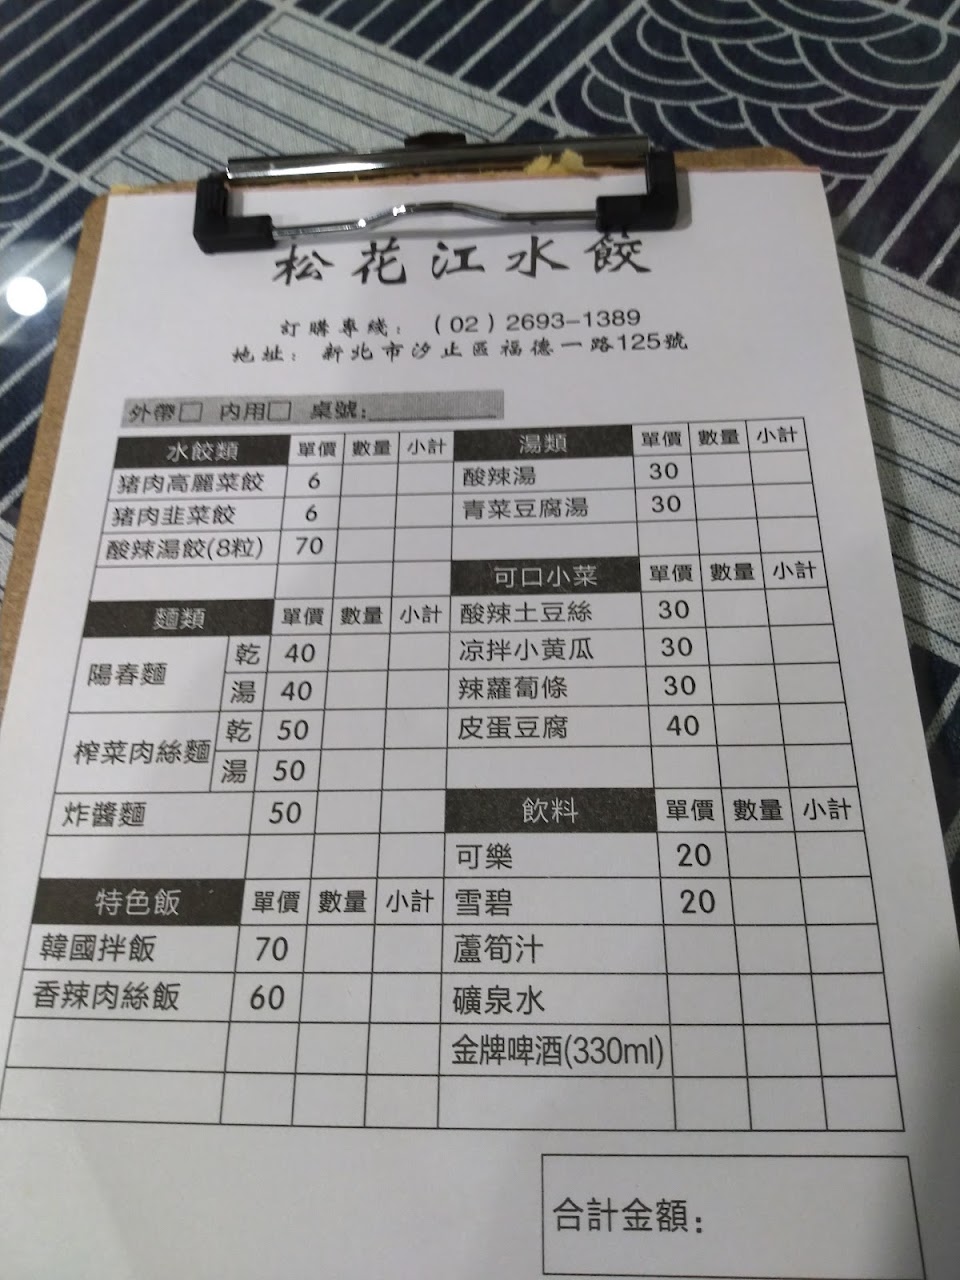 松花江水餃
訂購專綫：（02）2693-1389
地址：新北市汐止區福德一路125號
外帶□ 內用□ 桌號：
水餃類 單價 數量 小計
猪肉高麗菜餃 6
猪肉韭菜餃 6
酸辣湯餃(8粒) 70
麵類 單價 數量 小計
陽春麵 乾 40
湯 40
榨菜肉絲麵 乾 50
湯 50
炸醬麵 50
特色飯 單價 數量 小計
韓國拌飯 70
香辣肉絲飯 60
湯類 單價 數量 小計
酸辣湯 30
青菜豆腐湯 30
可口小菜 單價 數量 小計
酸辣土豆絲 30
凉拌小黄瓜 30
辣蘿蔔條 30
皮蛋豆腐 40
飲料 單價 數量 小計
可樂 20
雪碧 20
蘆筍汁
礦泉水
金牌啤酒(330ml)
合計金額：